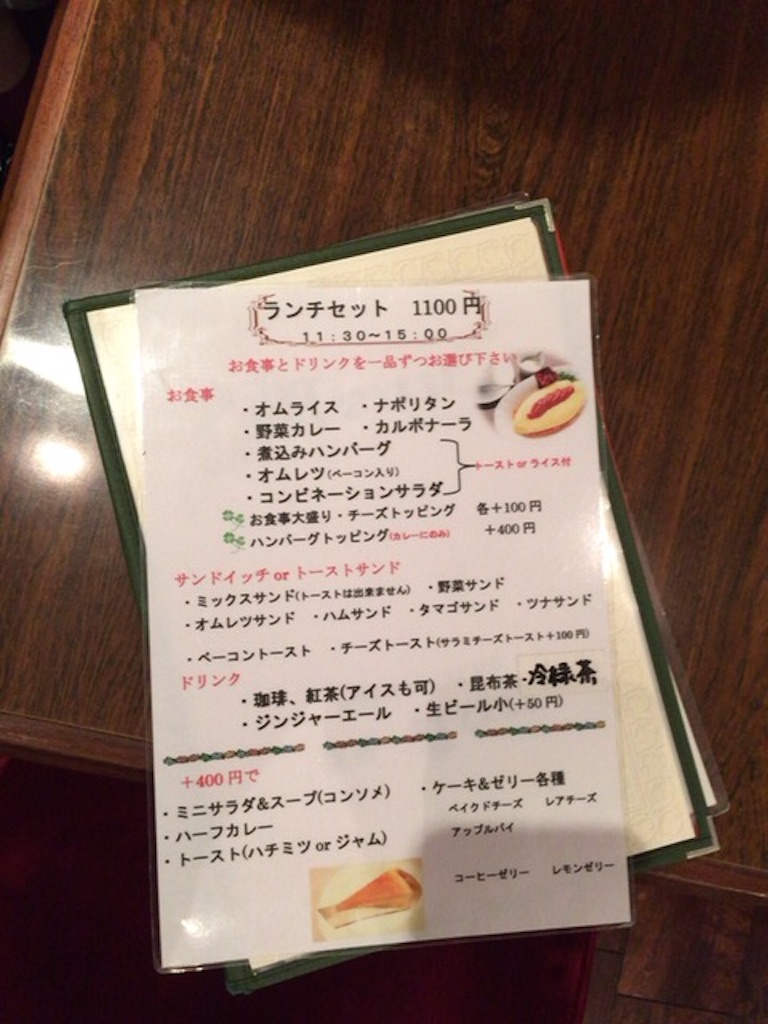 ランチセット 1100円
11:30～15:00
お食事とドリンクを一品ずつお選び下さい
お食事
・オムライス ・ナポリタン
・野菜カレー ・カルボナーラ
・煮込みハンバーグ
・オムレツ(ベーコン入り) トースト or ライス付
・コンビネーションサラダ
お食事大盛り・チーズトッピング 各＋100円
ハンバーグトッピング(カレーにのみ) ＋400円
サンドイッチ or トーストサンド
・ミックスサンド(トーストは出来ません) ・野菜サンド
・オムレツサンド ・ハムサンド ・タマゴサンド ・ツナサンド
・ベーコントースト ・チーズトースト(サラミチーズトースト＋100円)
ドリンク
・珈琲、紅茶(アイスも可) ・昆布茶・冷緑茶
・ジンジャーエール ・生ビール小(＋50円)
＋400円で
・ミニサラダ&スープ(コンソメ)
・ハーフカレー
・トースト(ハチミツ or ジャム)
・ケーキ&ゼリー各種
ベイクドチーズ レアチーズ
アップルパイ
コーヒーゼリー レモンゼリー